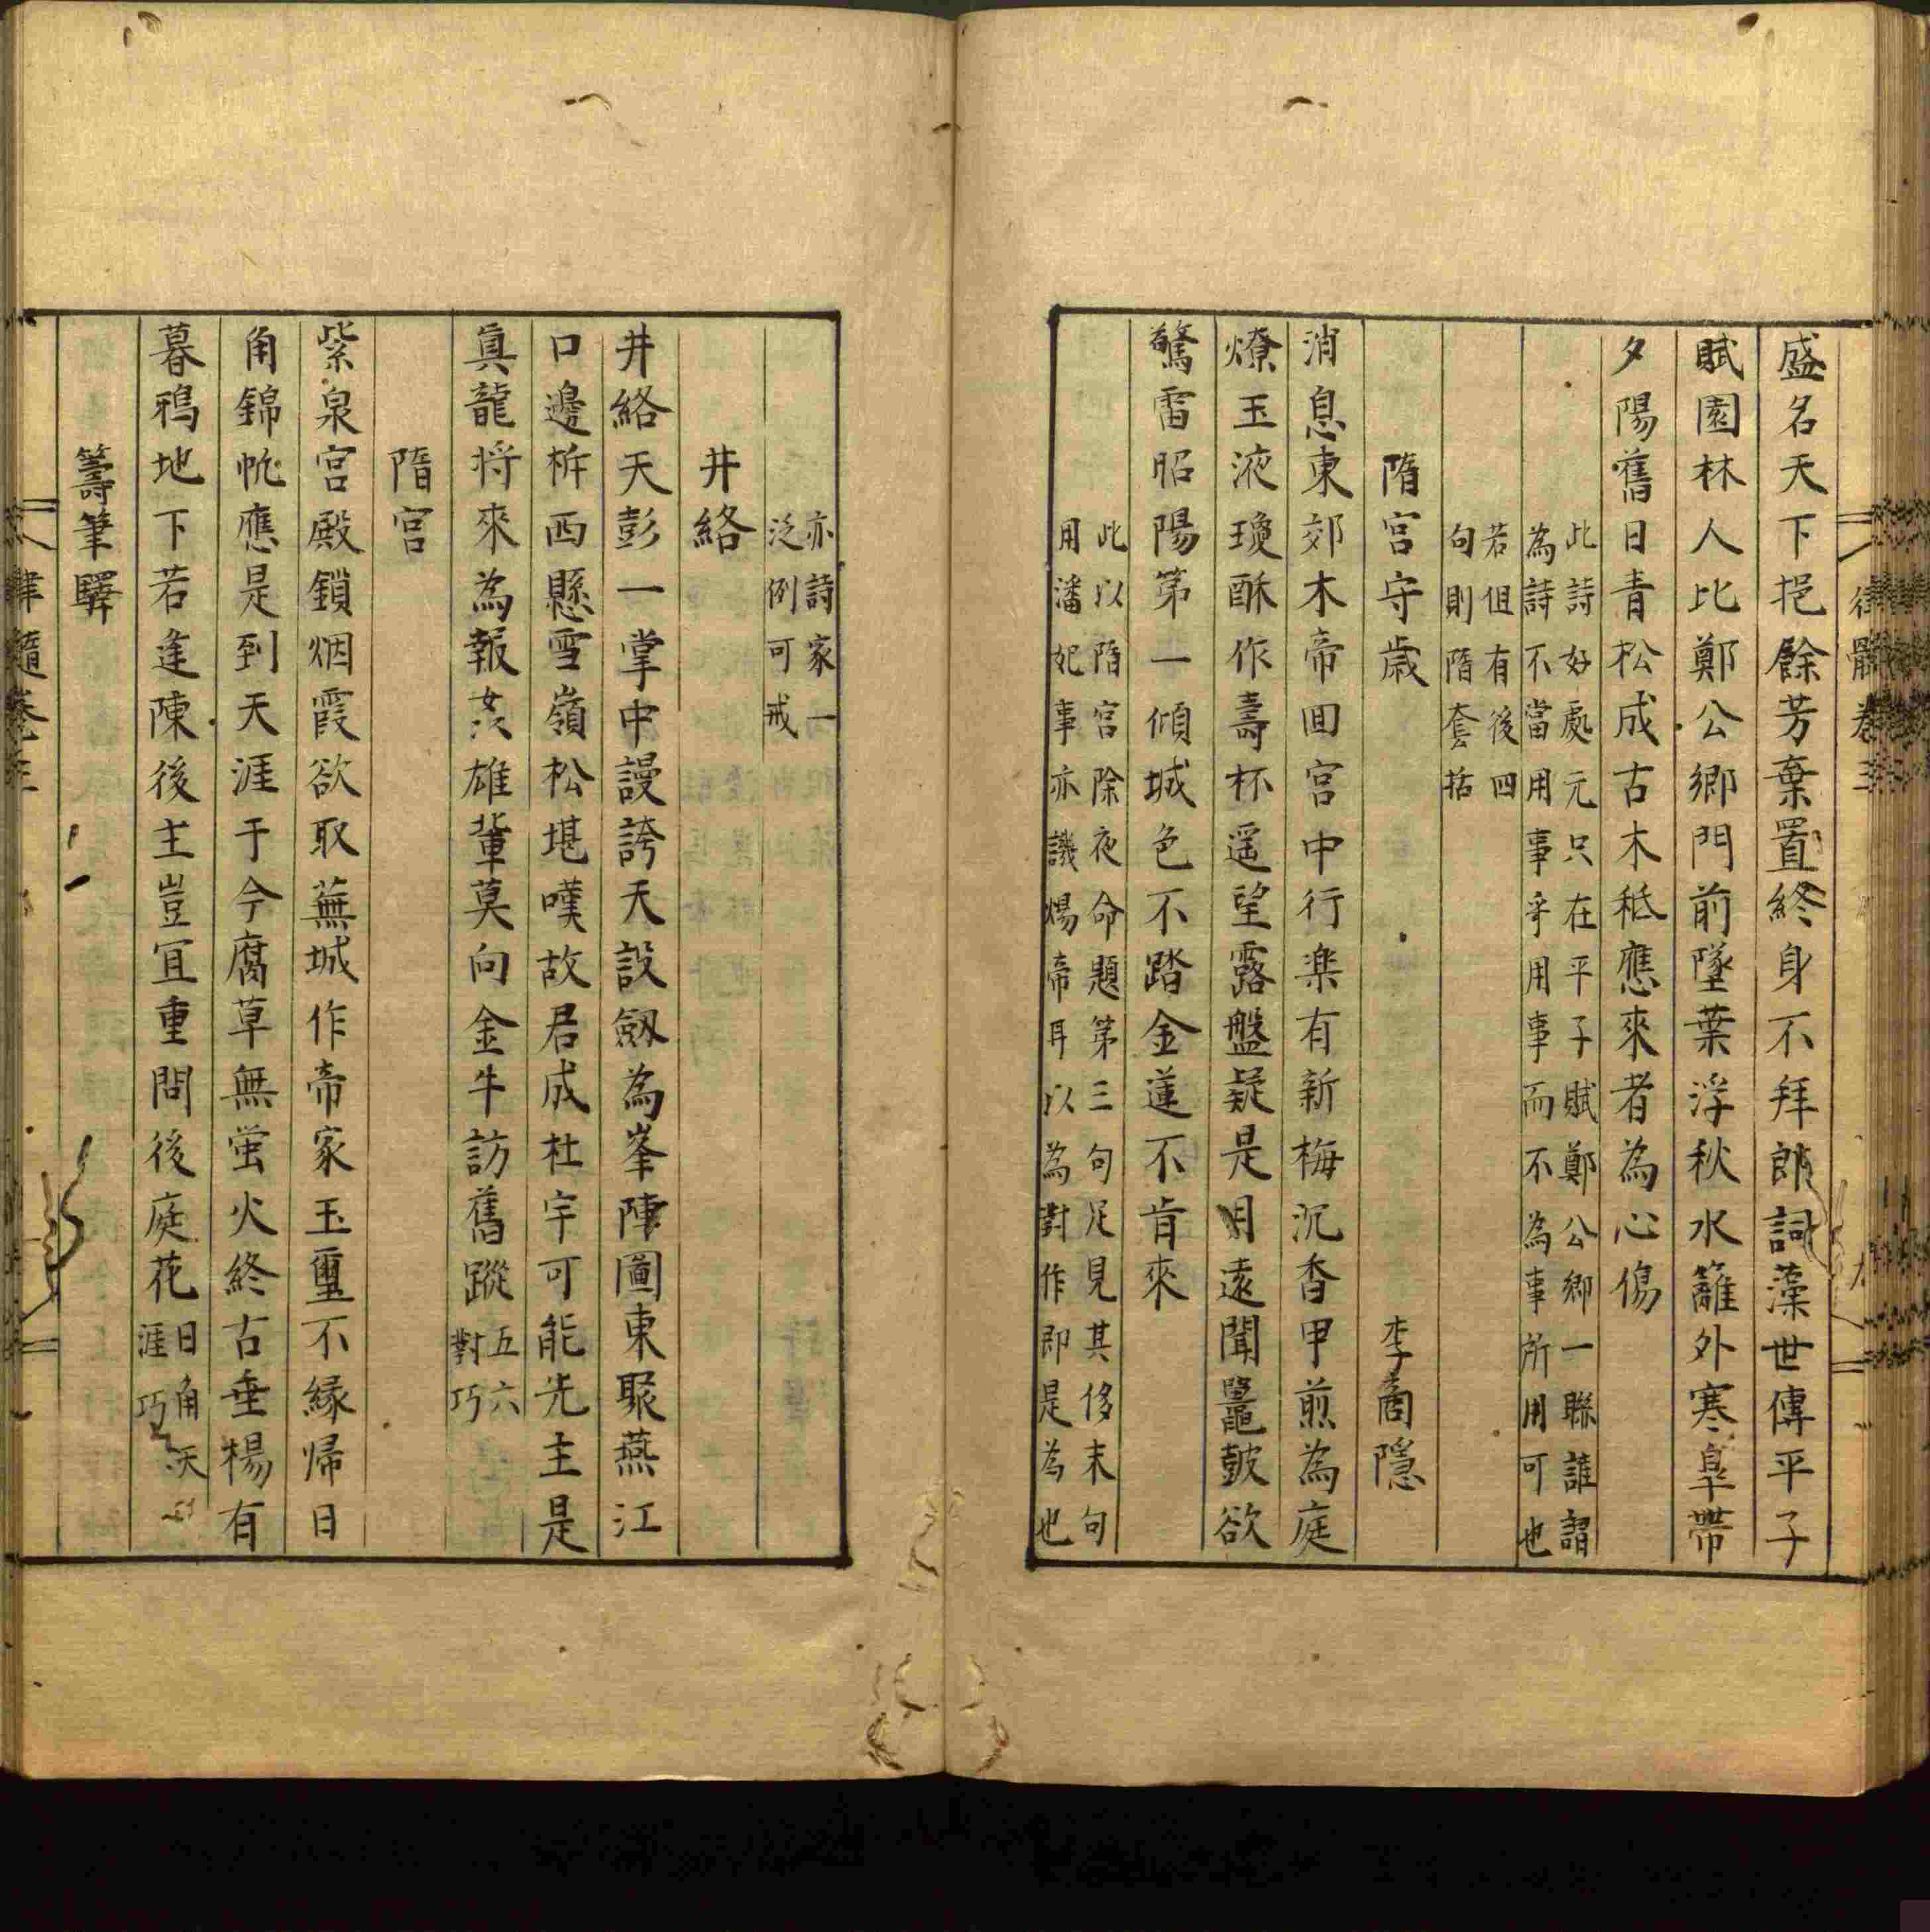 盛名天下挹餘芳棄置終身不拜郎詞藻世傳平子
賦園林人比鄭公鄉門前墜葉浮秋水籬外寒皐帶
夕陽舊日青松成古木秪應來者為心傷
此詩好處元只在平子賦鄭公鄉一聯誰謂
為詩不當用事乎用事而不為事所用可也
若但有後四
句則陏套括
隋宫守歲 李商隱
消息東郊木帝回宫中行楽有新梅沉香甲煎為庭
燎玉液瓊酥作壽杯遥望露盤疑是月遠聞鼉鼓欲
驚雷昭陽第一傾城色不踏金蓮不肯來
此以隋宫除夜命題第三句足見其侈末句
用潘妃事亦譏煬帝耳以為對作即是為也
亦詩家一
泛例可戒
井絡
井絡天彭一掌中謾誇天設劔為峯陣圖東聚燕江
口邊柝西懸雪嶺松堪嘆故君成杜宇可能先主是
真龍将來為報姦雄輩莫向金牛訪舊蹤五六
對巧
隋宫
紫泉宫殿鎖烟霞欲取蕪城作帝家玉璽不緣帰日
角錦帆應是到天涯于今腐草無螢火終古垂楊有
暮鴉地下若逢陳後主豈宜重問後庭花日角天
涯巧
籌筆驛
律髓卷三